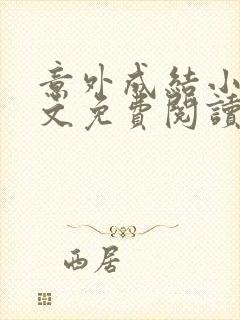 意外成結小
文免費閱讀
西居